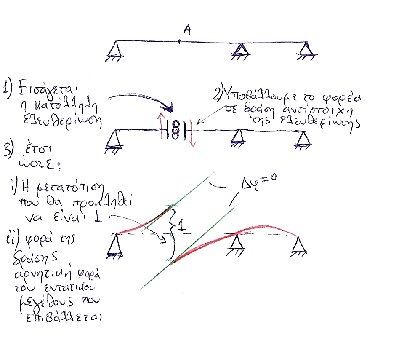 A
1) Εισάγεται
η κατάλληλη
ελευθέρωση
2) Υποβάλλουμε το φορέα
σε δράση αντίστοιχη
της ελευθέρωσης
3) έτσι
ώστε:
i) Η μετατόπιση
που θα προκληθεί
να είναι 1
Δφ=0
1
ii) φορά της
δράσης
αρνητική φορά
του εντατικού
μεγέθους που
επιβάλλεται